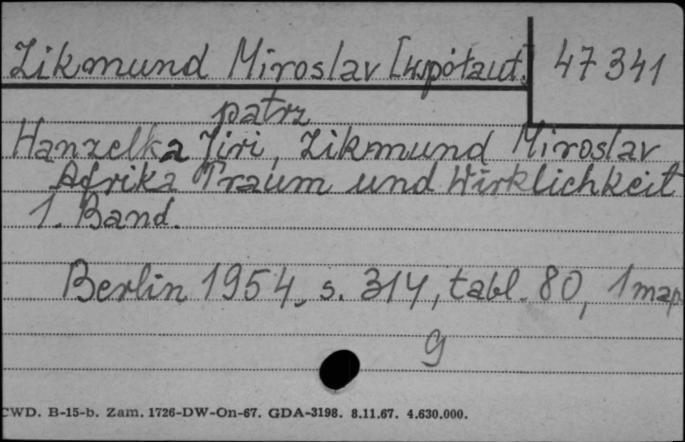 Zikmund Miroslav [współaut.] 47341
patrz
Hanzelka Jiri, Zikmund Miroslav
Afrika Traum und Wirklichkeit
1. Band.
Berlin 1954, s. 314, tabl. 80, 1 map
g
CWD. B-15-b. Zam. 1726-DW-On-67. GDA-3198. 8.11.67. 4.630.000.